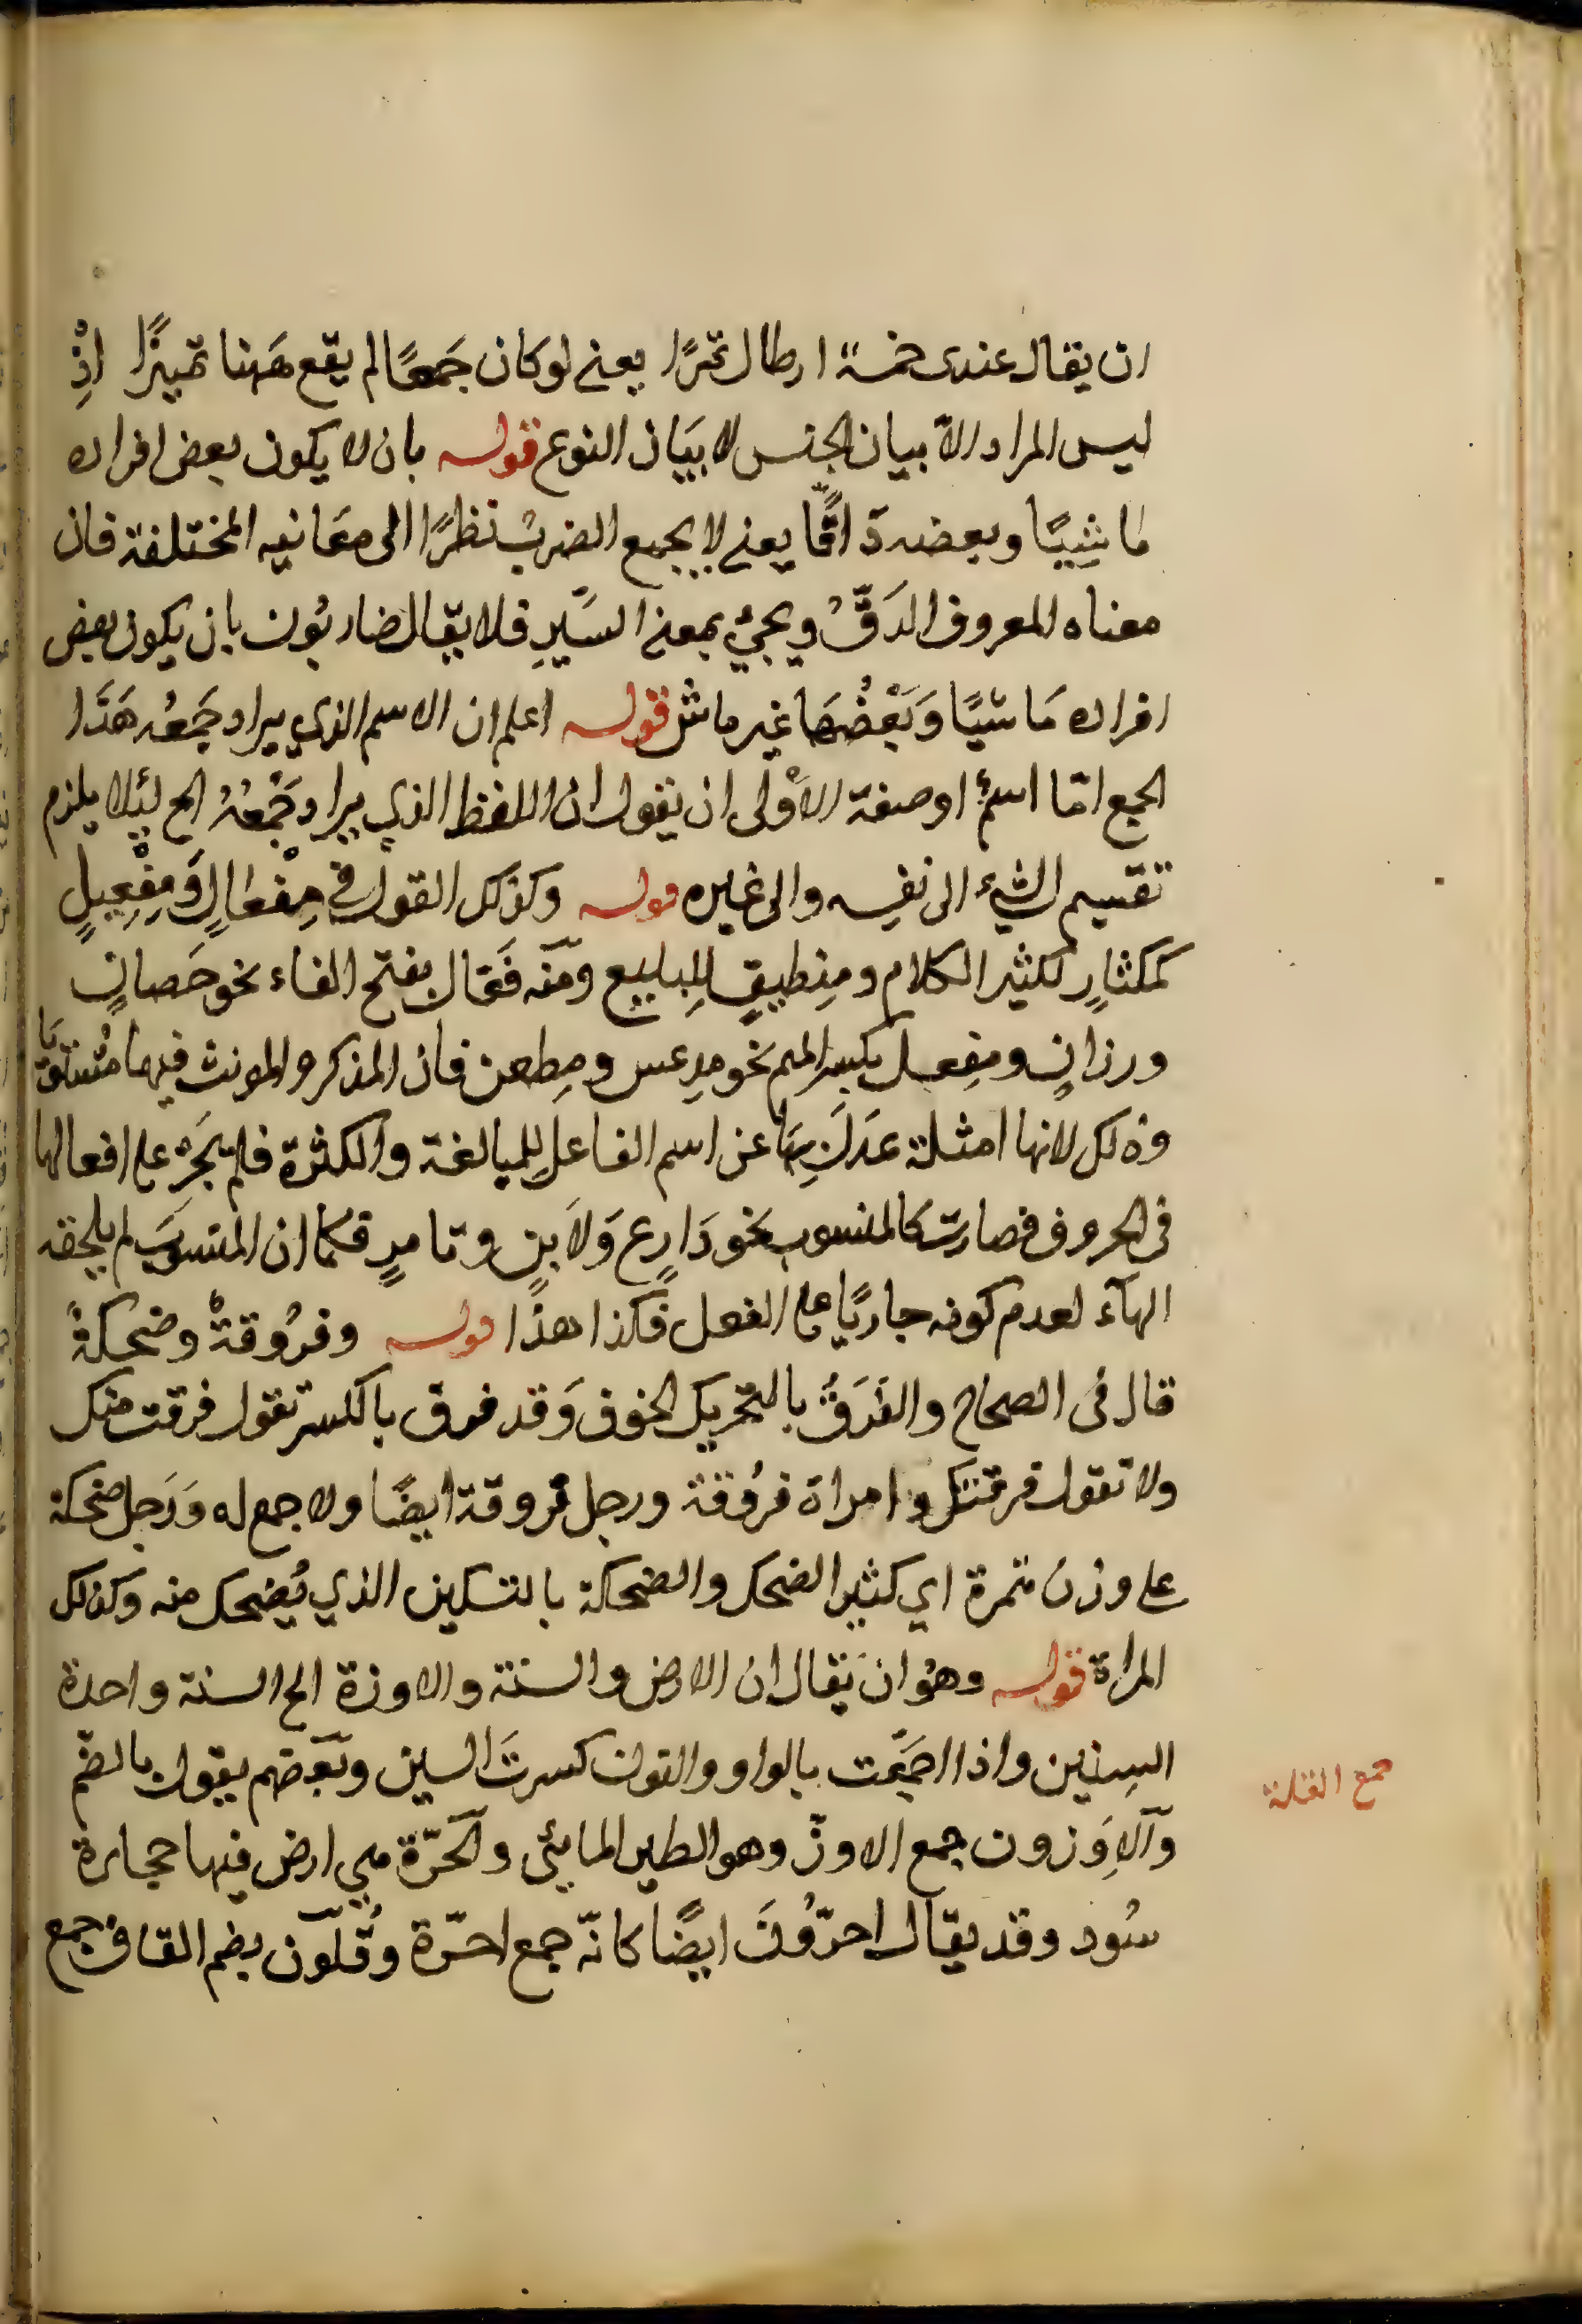 ان يقال عندى خمسة ارطال تمرًا يعنى لو كان جَمعًا لم يقع هَهنا تميزًا اِذْ
ليس المراد الا بيان الجنس لا بيَان النوع قوله بان لا يكون بعض افراده
ماشِيًا وبعضه دَاقًّا يعنى لا يجمع الضرب نظرًا الى معَانيه المختلفة فان
معناه المعروف الدَقُّ ويجيُ بمعنى السَّيرِ فلا يقال ضاربُون بان يكون بعض
افراده مَاشيًا وَبَعْضُهَا غير ماش قوله اعلم ان الاسم الذي يراد جَمعُه هَذَا
الجمع امّا اسمٌ او صفة الاَوْلى ان يقول ان اللفظ الذي يراد جَمْعُهُ الخ لئلا يلزم
تقسيم الشيء الى نفسِه والى غيره قوله وكذلك القول في مِفْعَالٍ وَمِفْعِيلٍ
كمكثارٍ لكثير الكلام ومِنطيقٍ للِبليغ ومنه فَعَال بفتح الفاء نحو حَصانٍ
ورزانٍ ومِفعل بكسر الميم نحو مِدعس ومِطعن فان المذكر والمونث فيهما مُتساويَا
وذلك لانها امثلة عدَلَ بِهَا عن اسم الفاعل للمبالغة والكثرة فلم يَجَرِ على افعالها
فى الحروف فصارت كالمنسوب نحو دَارِعٍ وَلاَبنٍ وتامرٍ فكما ان المنسوبَ لم يلحقه
الهآء لعدم كونه جاريًا على الفعل فكذا هذا قوله وفرُوقةٌ وضحكةً
قال فى الصحاح والفَرَقُ بالتحريك الخوف وَقد فرق بالكسر تقول فرقت منك
ولا تقول فرقتك وامراة فرُوقة ورجل فروقة ايضًا ولا جمع له وَرَجل ضحكة
على وزن تمرة اي كثير الضحك والضحكة بالتسكين الذي يُضحك منه وكذلك
المراة قوله وهُو ان يَقال ان الارض والسنة والاوزة الخ السنة واحدة
السِنين واذا اجمَعت بالواو والنون كسرتَ السين وبعضهم يقول بالضم
وآلاِوَزون جمع الاوزّ وهو الطير المايئى والحَرّة هي ارض فيها حجارة
سُود وقد يقال احرّوُنَ ايضًا كانّه جمع احرّة وقُلّون بضم القاف جمع
جمع القلة